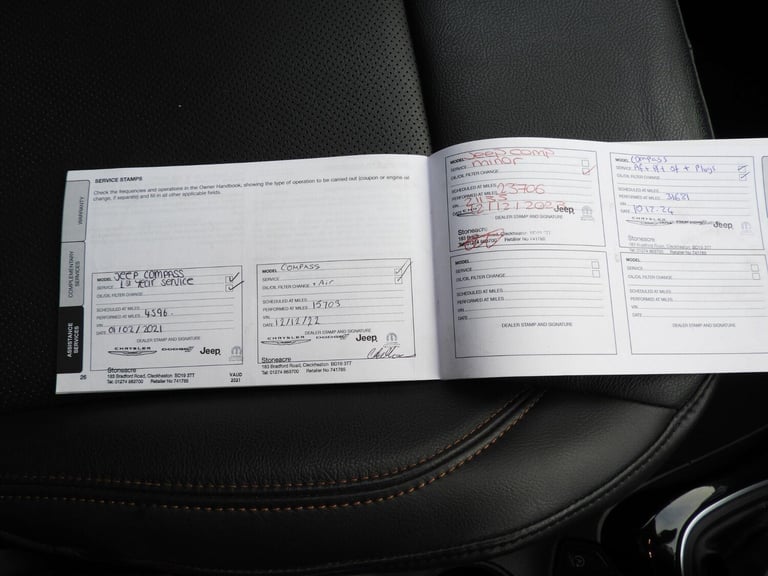 SERVICE STAMPS
Check the frequencies and operations in the Owner Handbook, showing the type of operation to be carried out (coupon or engine oil
change, if separate) and fill in all other applicable fields.
WARRANTY
COMPLEMENTARY
SERVICES
ASSISTANCE
SERVICES
MODEL JEEP COMPASS
SERVICE 1st Year Service
OIL/OIL FILTER CHANGE
SCHEDULED AT MILES
PERFORMED AT MILES 4596.
VIN
DATE 01/02/2021
DEALER STAMP AND SIGNATURE
CHRYSLER DODGE Jeep
Stoneacre
183 Bradford Road, Cleckheaton BD19 3TT
Tel: 01274 869700 Retailer No 741785
VAUD
2021
26
MODEL COMPASS
SERVICE
OIL/OIL FILTER CHANGE + Air
SCHEDULED AT MILES
PERFORMED AT MILES 15703
VIN
DATE 12/12/22
DEALER STAMP AND SIGNATURE
CHRYSLER DODGE Jeep
Stoneacre
183 Bradford Road, Cleckheaton BD19 3TT
Tel: 01274 869700 Retailer No 741785
MODEL Jeep comp
SERVICE minor
OIL/OIL FILTER CHANGE
SCHEDULED AT MILES 23706
PERFORMED AT MILES
VIN
DATE
DEALER STAMP AND SIGNATURE
Jeep
Stoneacre
183 Bradford Road, Cleckheaton
Retailer No 741785
MODEL Compass
SERVICE + Plugs
OIL/OIL FILTER CHANGE
SCHEDULED AT MILES
PERFORMED AT MILES 31621
VIN
DATE 10-12-24
DEALER STAMP AND SIGNATURE
CHRYSLER Jeep
Stoneacre
183 Bradford Road, Cleckheaton BD19 3TT
Tel: 01274 869700 Retailer No 741785
MODEL
SERVICE
OIL/OIL FILTER CHANGE
SCHEDULED AT MILES
PERFORMED AT MILES
VIN
DATE
DEALER STAMP AND SIGNATURE
MODEL
SERVICE
OIL/OIL FILTER CHANGE
SCHEDULED AT MILES
PERFORMED AT MILES
VIN
DATE
DEALER STAMP AND SIGNATURE